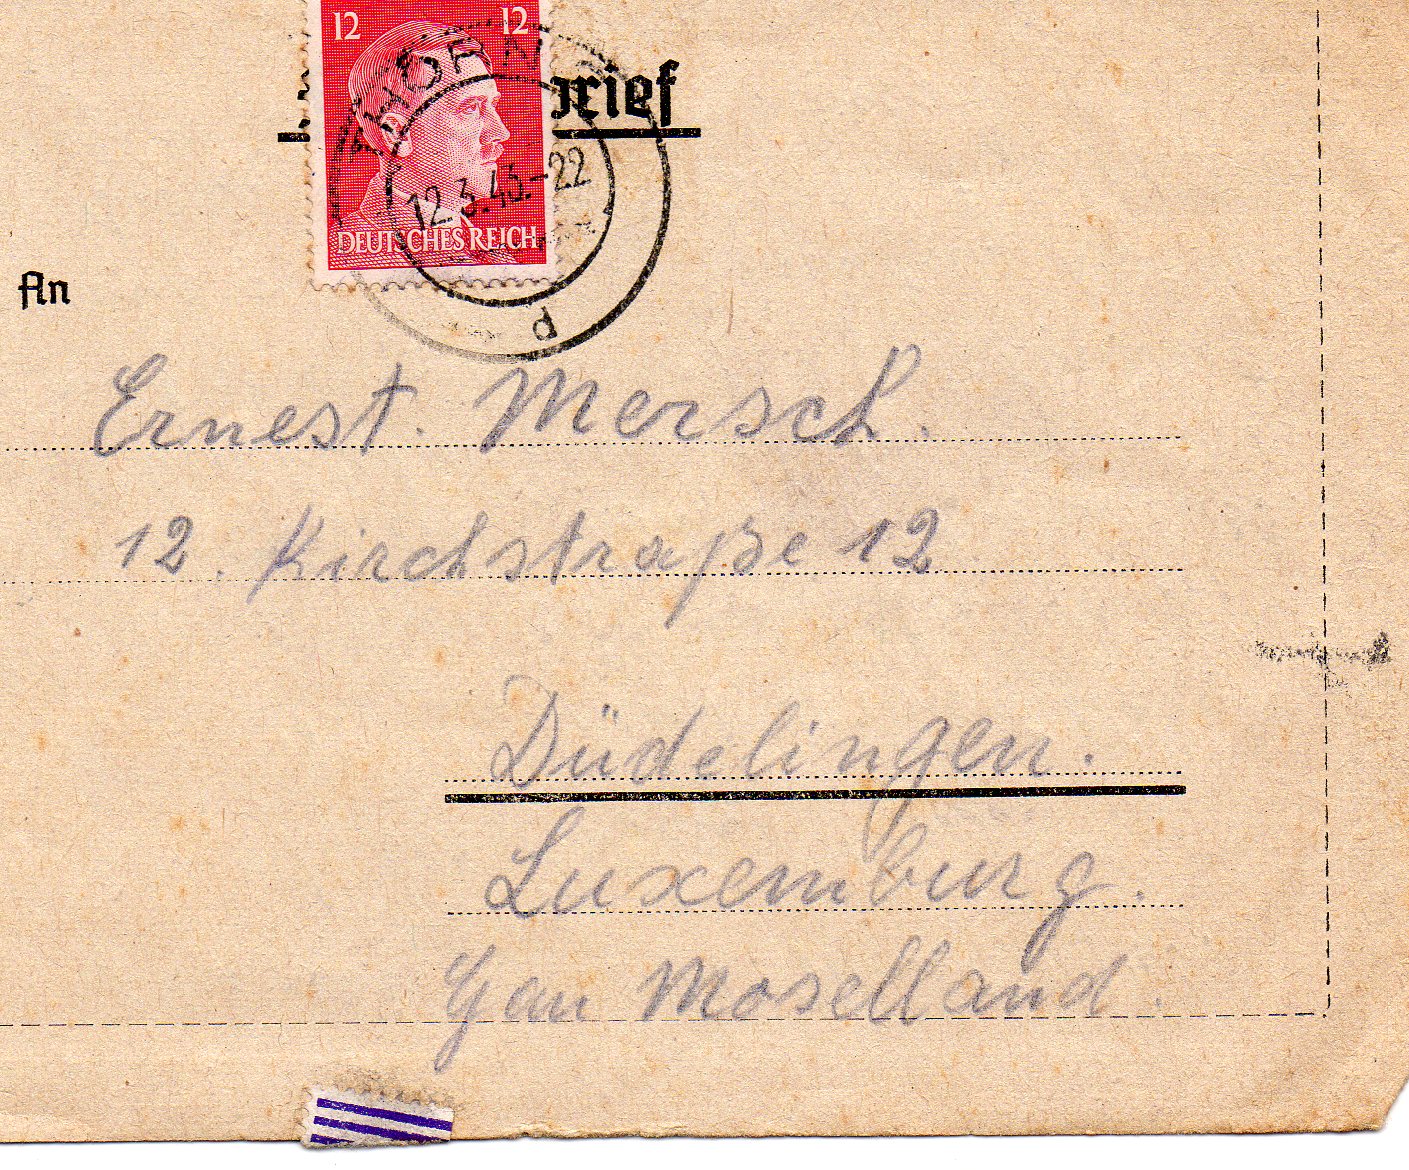 12 12
THORN
rief
12.3.43.-22
DEUTSCHES REICH
d
An
Ernest. Mersch.
12. Kirchstraße 12
Düdelingen.
Luxemburg.
Gau Moselland.